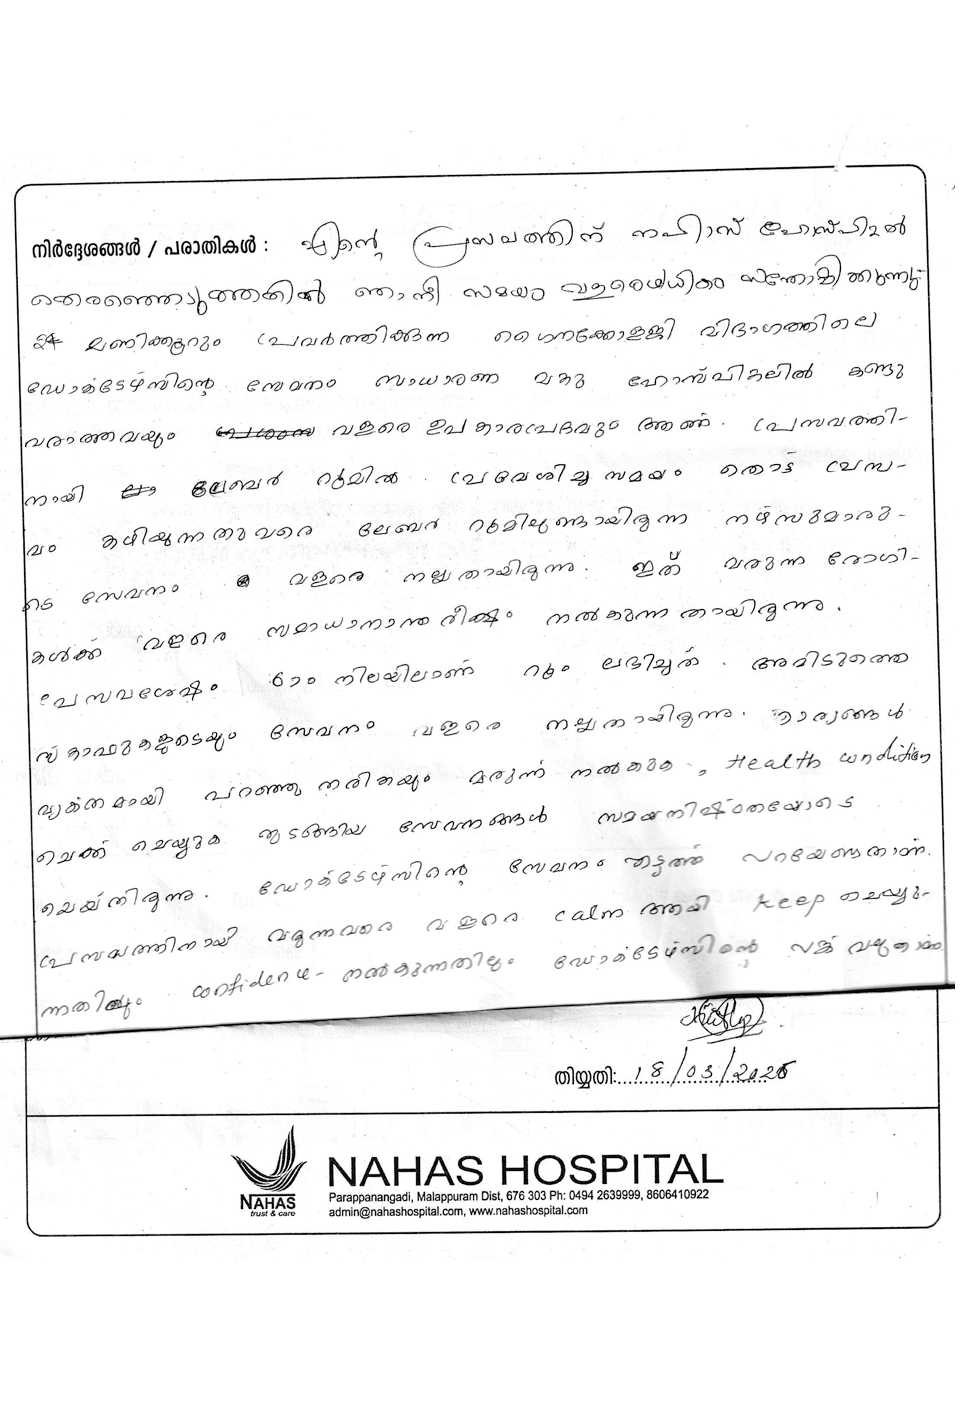 നിർദ്ദേശങ്ങൾ / പരാതികൾ : എന്റെ പ്രസവത്തിന് നഹാസ് ഹോസ്പിറ്റൽ
തെരഞ്ഞെടുത്തതിൽ ഞാൻ ഈ സമയം വളരെയധികം സന്തോഷിക്കുന്നു.
24 മണിക്കൂറും പ്രവർത്തിക്കുന്ന ഗൈനക്കോളജി വിഭാഗത്തിലെ
ഡോക്ടേഴ്സിന്റെ സേവനം സാധാരണ മറ്റു ഹോസ്പിറ്റലിൽ കണ്ടു
വരാത്തവയും വളരെ ഉപകാരപ്രദവും ആണ്. പ്രസവത്തി-
നായി ലേബർ റൂമിൽ പ്രവേശിച്ച സമയം തൊട്ട് പ്രസ-
വം കഴിയുന്നതുവരെ ലേബർ റൂമിലുണ്ടായിരുന്ന നഴ്സുമാരു-
ടെ സേവനം വളരെ നല്ലതായിരുന്നു. ഇത് വരുന്ന രോഗി-
കൾക്ക് വളരെ സമാധാനാന്തരീക്ഷം നൽകുന്നതായിരുന്നു.
പ്രസവശേഷം 6ാം നിലയിലാണ് റൂം ലഭിച്ചത്. അവിടുത്തെ
സ്റ്റാഫുകളുടെയും സേവനം വളരെ നല്ലതായിരുന്നു. കാര്യങ്ങൾ
വ്യക്തമായി പറഞ്ഞു തരികയും മരുന്ന് നൽകുക, Health condition
ചെക്ക് ചെയ്യുക തുടങ്ങിയ സേവനങ്ങൾ സമയനിഷ്ഠതയോടെ
ചെയ്തിരുന്നു. ഡോക്ടേഴ്സിന്റെ സേവനം എടുത്ത് പറയേണ്ടതാണ്.
പ്രസവത്തിനായി വരുന്നവരെ വളരെ calm ആയി keep ചെയ്യു-
ന്നതിലും confidence നൽകുന്നതിലും ഡോക്ടേഴ്സിന്റെ പങ്ക് വലുതാണ്
തിയ്യതി: 18/03/2026
NAHAS HOSPITAL
NAHAS
trust & care
Parappanangadi, Malappuram Dist, 676 303 Ph: 0494 2639999, 8606410922
admin@nahashospital.com, www.nahashospital.com